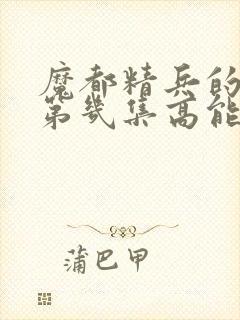 魔都精兵的
第几集高能
蒲巴甲